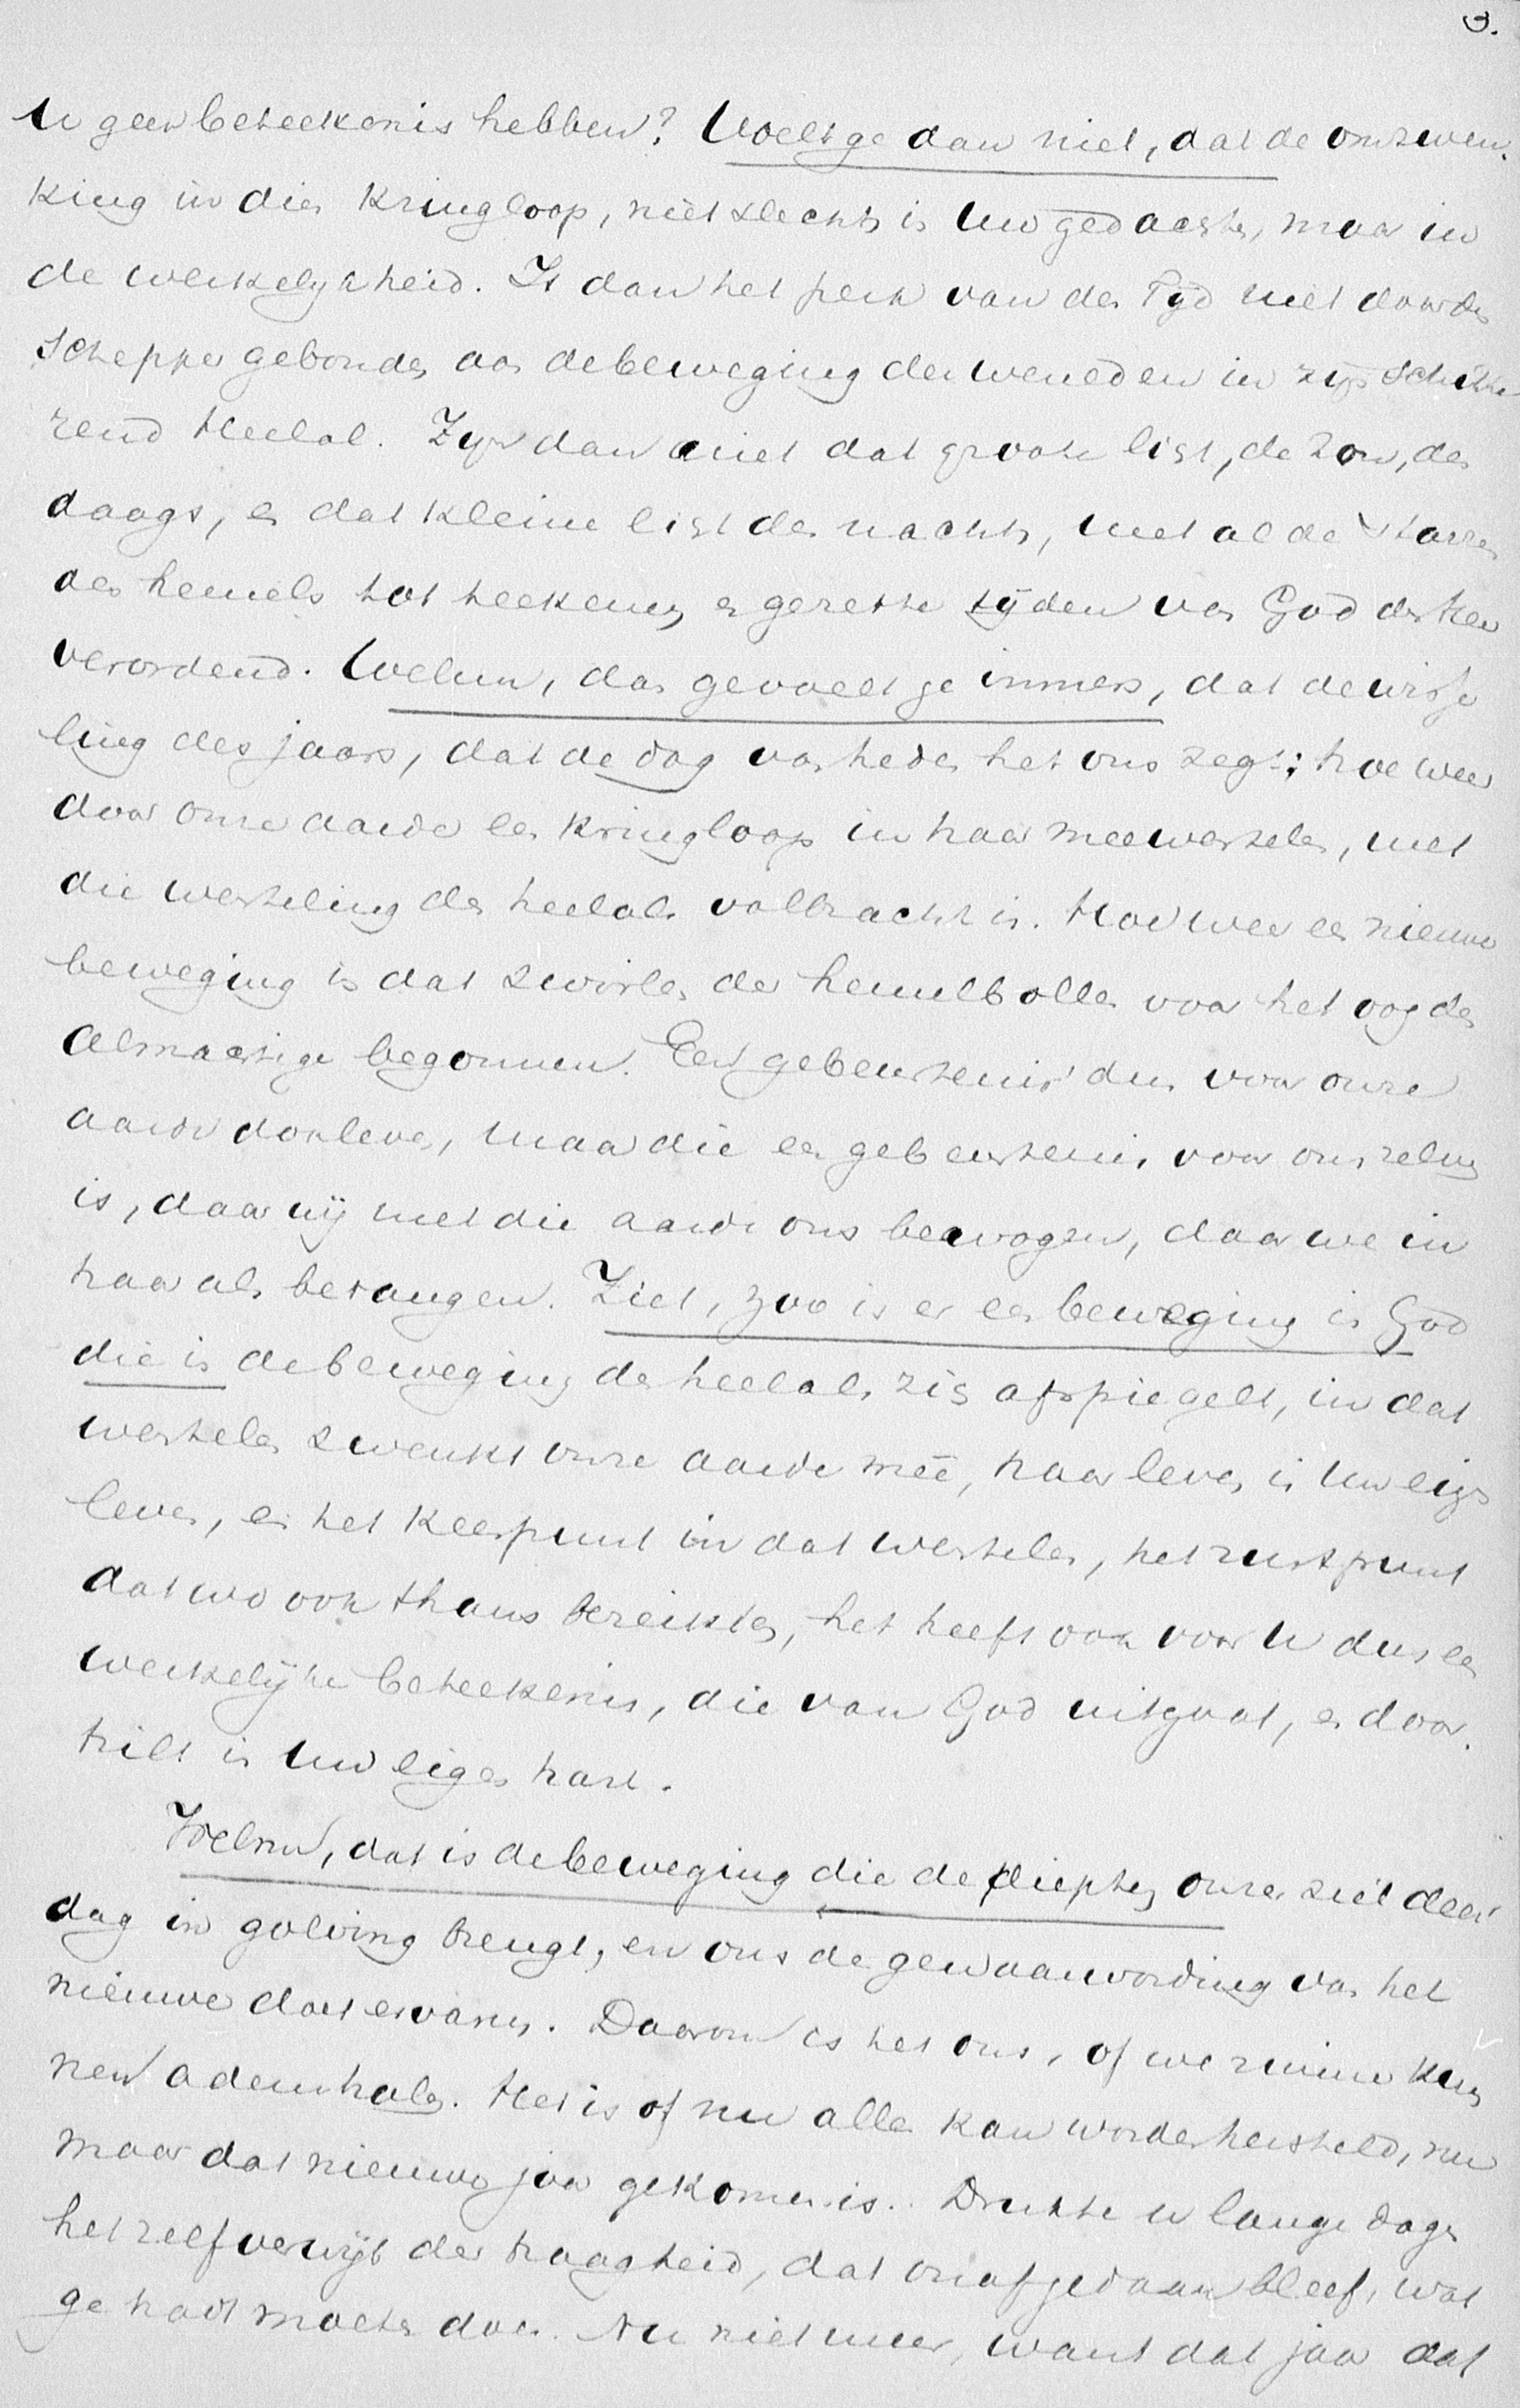 3.
U geen beteekenis hebben? Voelt ge dan niet, dat de omzwen-
king in dien Kringloop, niet slechts is in Uw gedachte, maar in
de werkelykheid. Is dan het perk van den Tyd niet door den
Schepper gebonden aan de beweging der wereelden in zijn schitte-
rend Heelal. Zyn dan niet dat groote licht, de Zon, des
daags, en dat kleine licht des nachts, met al de starren
des hemels tot teekenen en gezette tijden van God den Heer
verordend. Welnu, dan gevoelt ge immers, dat de wisse-
ling des jaars, dat de dag van heden het ons zegt; hoe weer
door onze aarde een kringloop in haar meewentelen, met
die wenteling des heelals volbracht is. Hoe weer een nieuwe
beweging in dat zwirlen der hemelbollen voor het oog des
Almachtige begonnen. Een gebeurtenis dus voor onze
aarde doorleven, maar die een gebeurtenis voor ons zelven
is, daar wij met die aarde ons bewogen, daar we in
haar als bevangen. Ziet, zoo is er een beweging in God
die in de beweging des heelals zich afspiegelt, in dat
wentelen zwenkt onze aarde meê, haar leven is Uw eigen
leven, en het Keerpunt in dat wentelen, het rustpunt
dat we ook thans bereikten, het heeft ook voor U dus een
werkelijke beteekenis, die van God uitgaat, en door-
trilt in Uw eigen hart.
Welnu, dat is de beweging die de diepten onzer ziel deez'
dag in golving brengt, en ons de gewaarwording van het
nieuwe doet ervaren. Daarom is het ons, of we ruimer kun
nen ademhalen. Het is of nu alles kan worden hersteld, nu
maar dat nieuwe jaar gekomen is. Drukte u lange dagen
het zelfverwijt der traagheid, dat onafgedaan bleef, wat
ge hadt moeten doen. Nu niet meer, want dat jaar dat